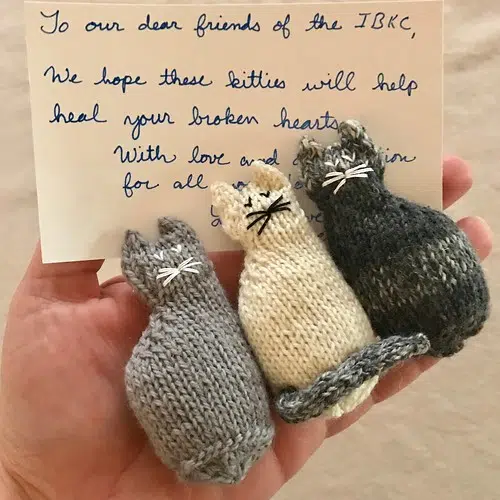 To our dear friends of the IBKC,
We hope these kitties will help
heal your broken hearts
With love and
for all